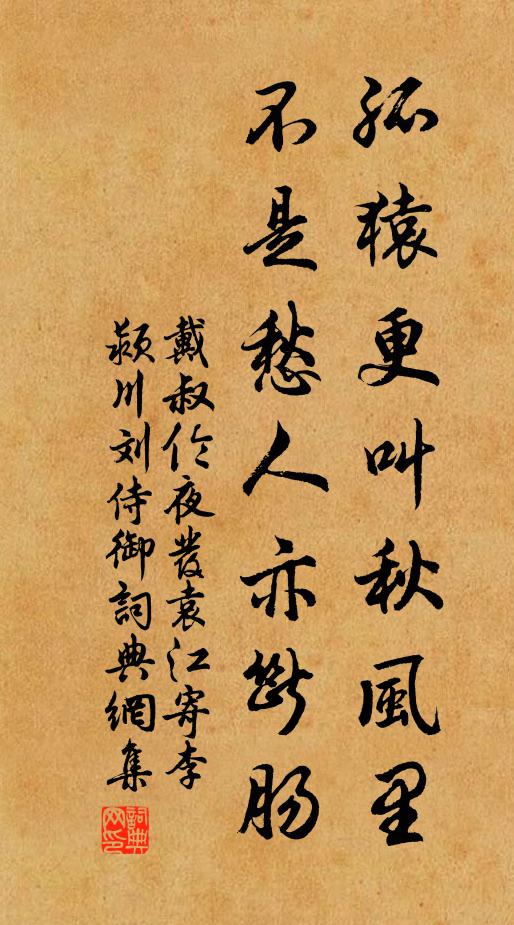 孤猿更叫秋風里
不是愁人亦斷肠
戴叔伦夜發袁江寄李
颍川刘侍御詞典網集
詞典网印